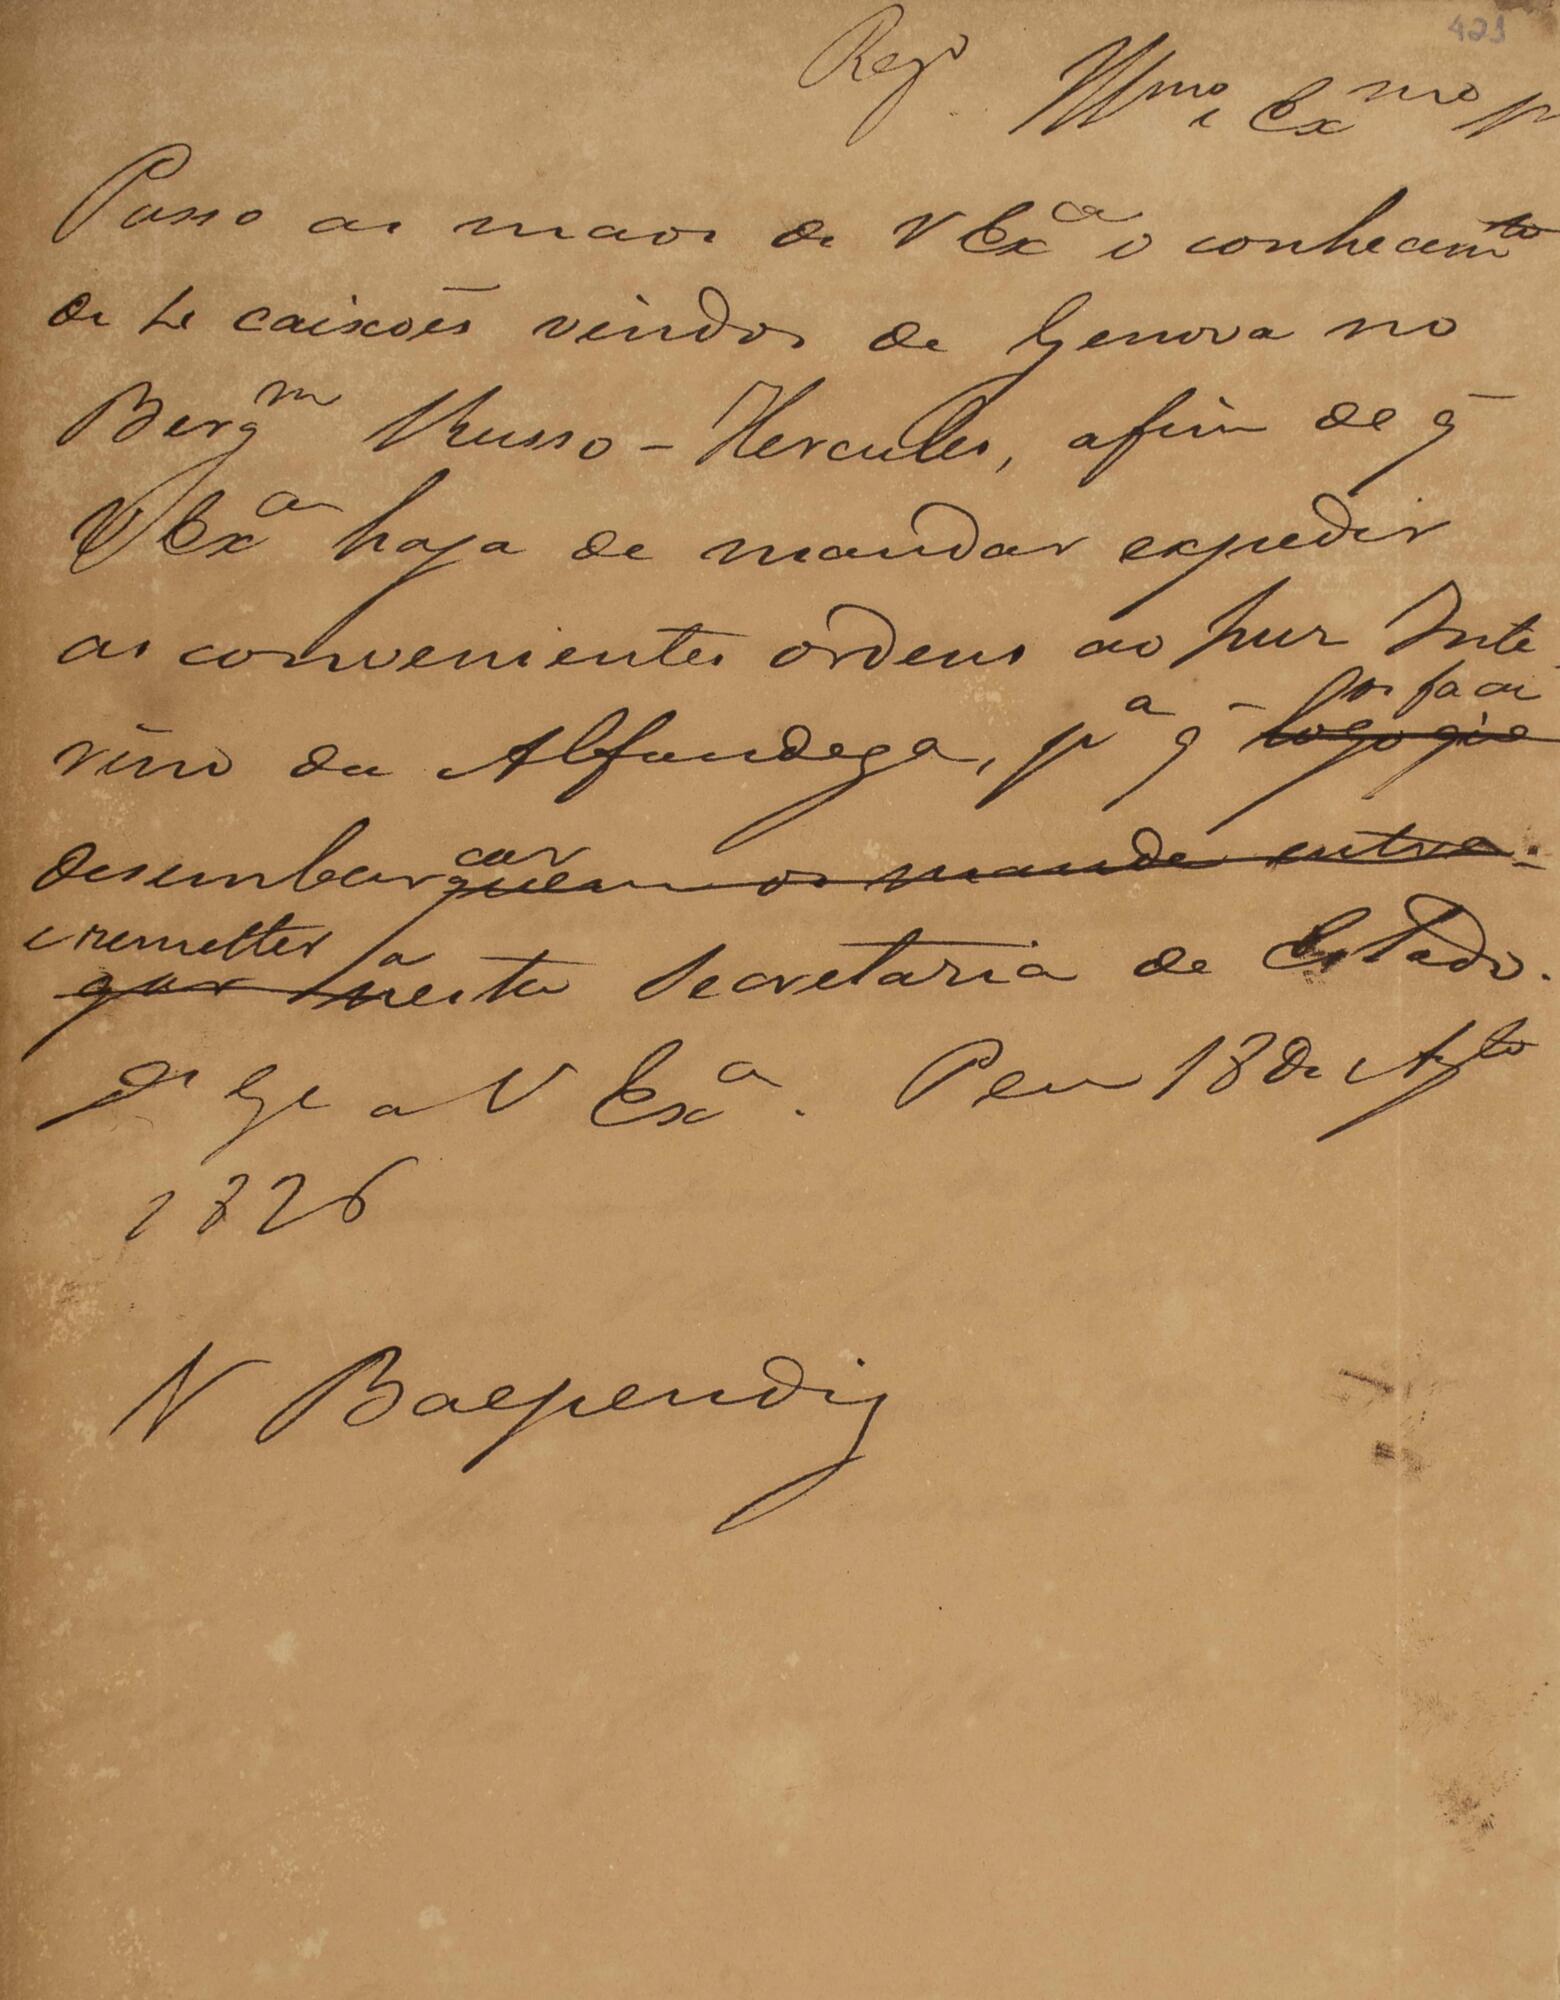 421
Reg.º Illmo e Exmo
Passo as maos de V Exª o conhecimto
de caixões vindos de Genova no
Bergm Russo - Hercules, afim de q̃
V Exª haja de mandar expedir
as convenientes ordens ao Juiz Inte
rino da Alfandega, pª q̃ logo que
os faça
desembarquem os mande entre-
car
e remetter a
gar nesta Secretaria de Estado.
Ds Ge a V Exª. P em 18 de Agto
1826
Baependy